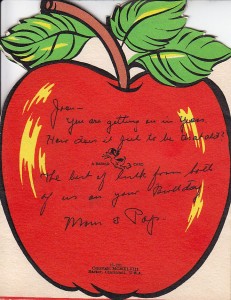 Jean—
You are getting on in years.
How does it feel to be that old?
The best of luck from both
of us on your Birthday
Mom & Pop.